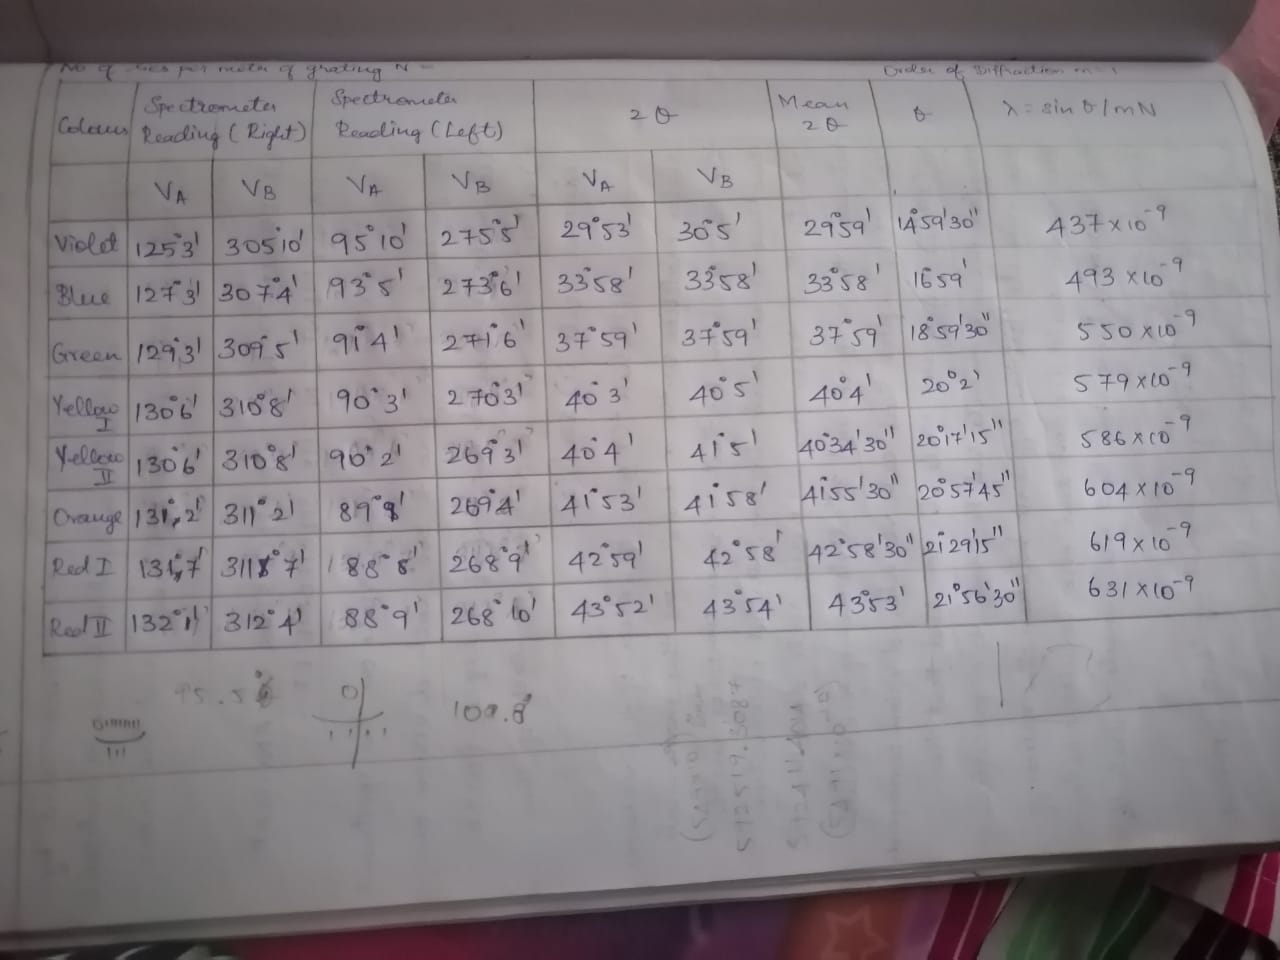 No of lines per meter of grating N =
Order of Diffraction m = 1
Colour Spectrometer Reading (Right) Spectrometer Reading (Left) 2θ Mean 2θ θ λ = sin θ/mN
VA VB VA VB VA VB
Violet 125°3' 305°10' 95°10' 275°5' 29°53' 30°5' 29°59' 14°59'30" 437×10⁻⁹
Blue 127°3' 307°4' 93°5' 273°6' 33°58' 33°58' 33°58' 16°59' 493×10⁻⁹
Green 129°3' 309°5' 91°4' 271°6' 37°59' 37°59' 37°59' 18°59'30" 550×10⁻⁹
Yellow I 130°6' 310°8' 90°3' 270°3' 40°3' 40°5' 40°4' 20°2' 579×10⁻⁹
Yellow II 130°6' 310°8' 90°2' 269°3' 40°4' 41°5' 40°34'30" 20°17'15" 586×10⁻⁹
Orange 131°2' 311°2' 89°9' 269°4' 41°53' 41°58' 41°55'30" 20°57'45" 604×10⁻⁹
Red I 131°7' 311°7' 88°8' 268°9' 42°59' 42°58' 42°58'30" 21°29'15" 619×10⁻⁹
Red II 132°1' 312°4' 88°9' 268°10' 43°52' 43°54' 43°53' 21°56'30" 631×10⁻⁹